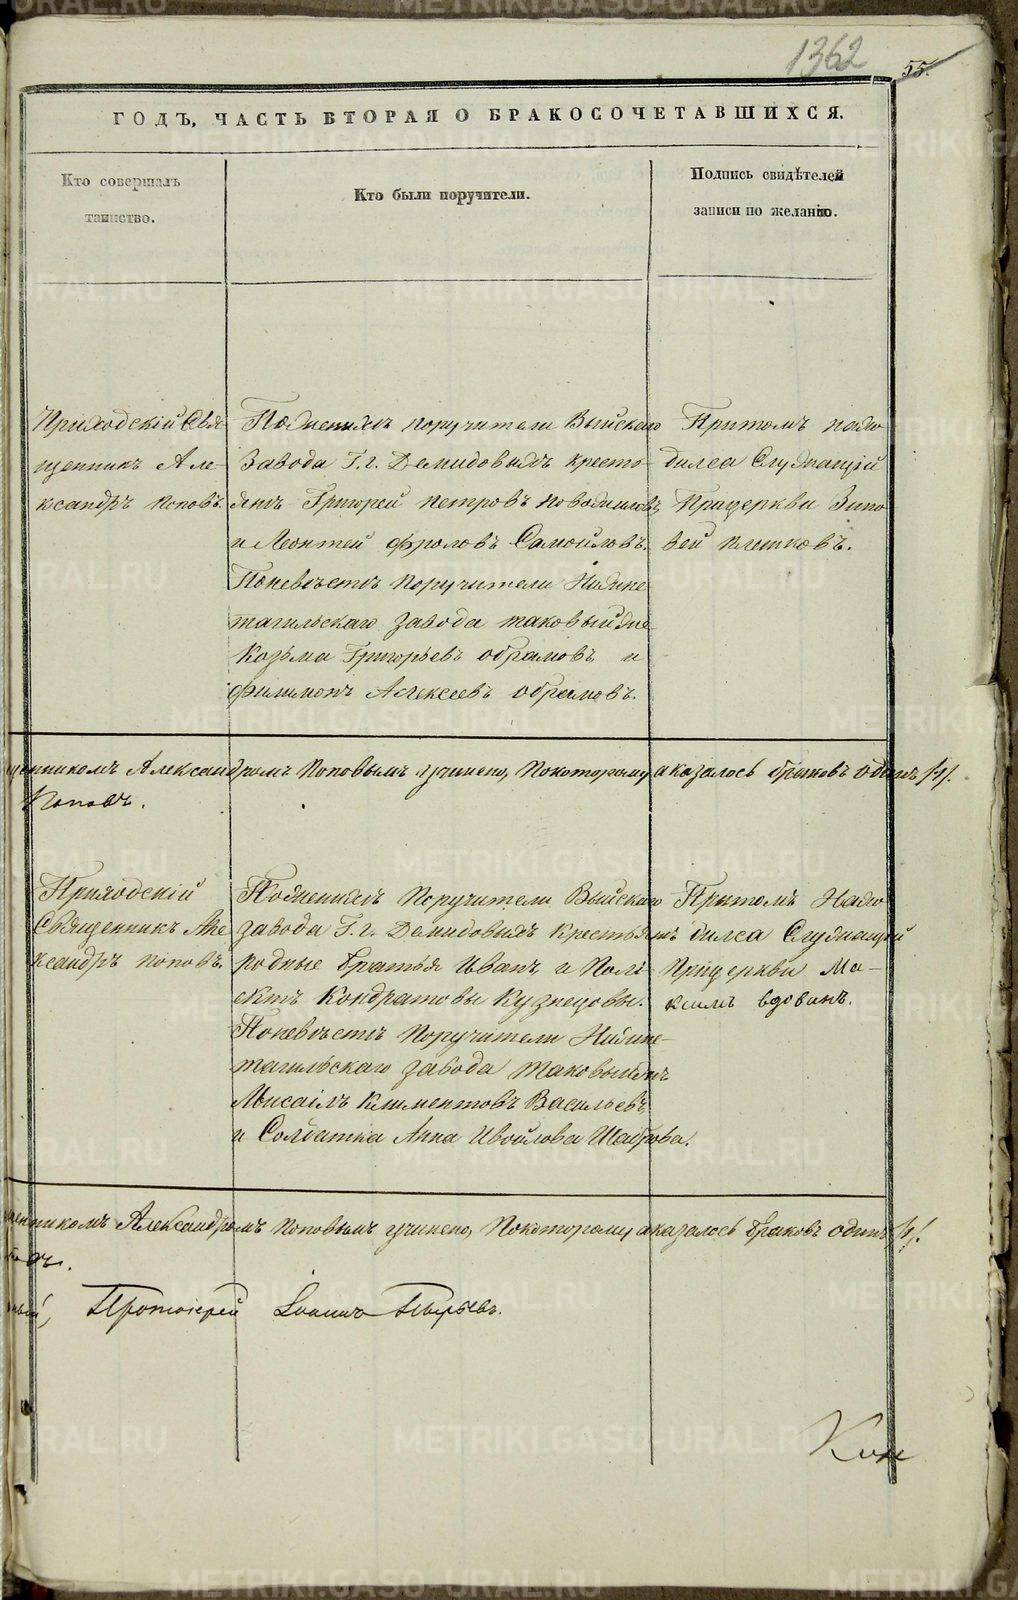 1362
55.
ГОДЪ, ЧАСТЬ ВТОРАЯ О БРАКОСОЧЕТАВШИХСЯ.
Кто совершалъ
таинство.
Кто были поручители.
Подпись свидѣтелей
записи по желанію.
Приходскій Свя-
щенникъ Але-
ксандръ Поповъ.
Поженихѣ поручители Выйскаго
Завода Г.г. Демидовыхъ кресть-
янѣ Григорей Петровъ
и Леонтей Фроловъ Самойловъ.
Поневѣстѣ Поручители Нижне
тагильскаго завода таковыйже
Козьма Григорьевъ Обрамовъ и
Филимонъ Алексеевъ Обрамовъ.
Притомъ нахо
дился Служащій
Прицеркви Зино
вей Плешковъ.
щенникомъ Александромъ Поповымъ учинено, Покоторому аказалось браковъ одинъ /1/.
Поповъ.
Приходскій
Священникъ Але
ксандръ Поповъ.
Поженихѣ Поручители Выйскаго
завода Г.г. Демидовыхъ Крестьянѣ
родные братья Иванъ и Поли
ектъ Кондратовы Кузнецовы.
Поневѣстѣ Поручители Нижне-
тагильскаго завода таковыйже
Мисаилъ Климентовъ Васильевъ
и Солдатка Анна Ивойлова
Притомъ Нахо
дился Служащій
Прицеркви Ма-
ксимъ Вдовинъ.
щенникомъ Александромъ Поповымъ учинено, Покоторому аказалось браковъ одинъ /1/.
Протоіерей Іоаннъ Пырьевъ.
METRIKI.GASO-URAL.RU